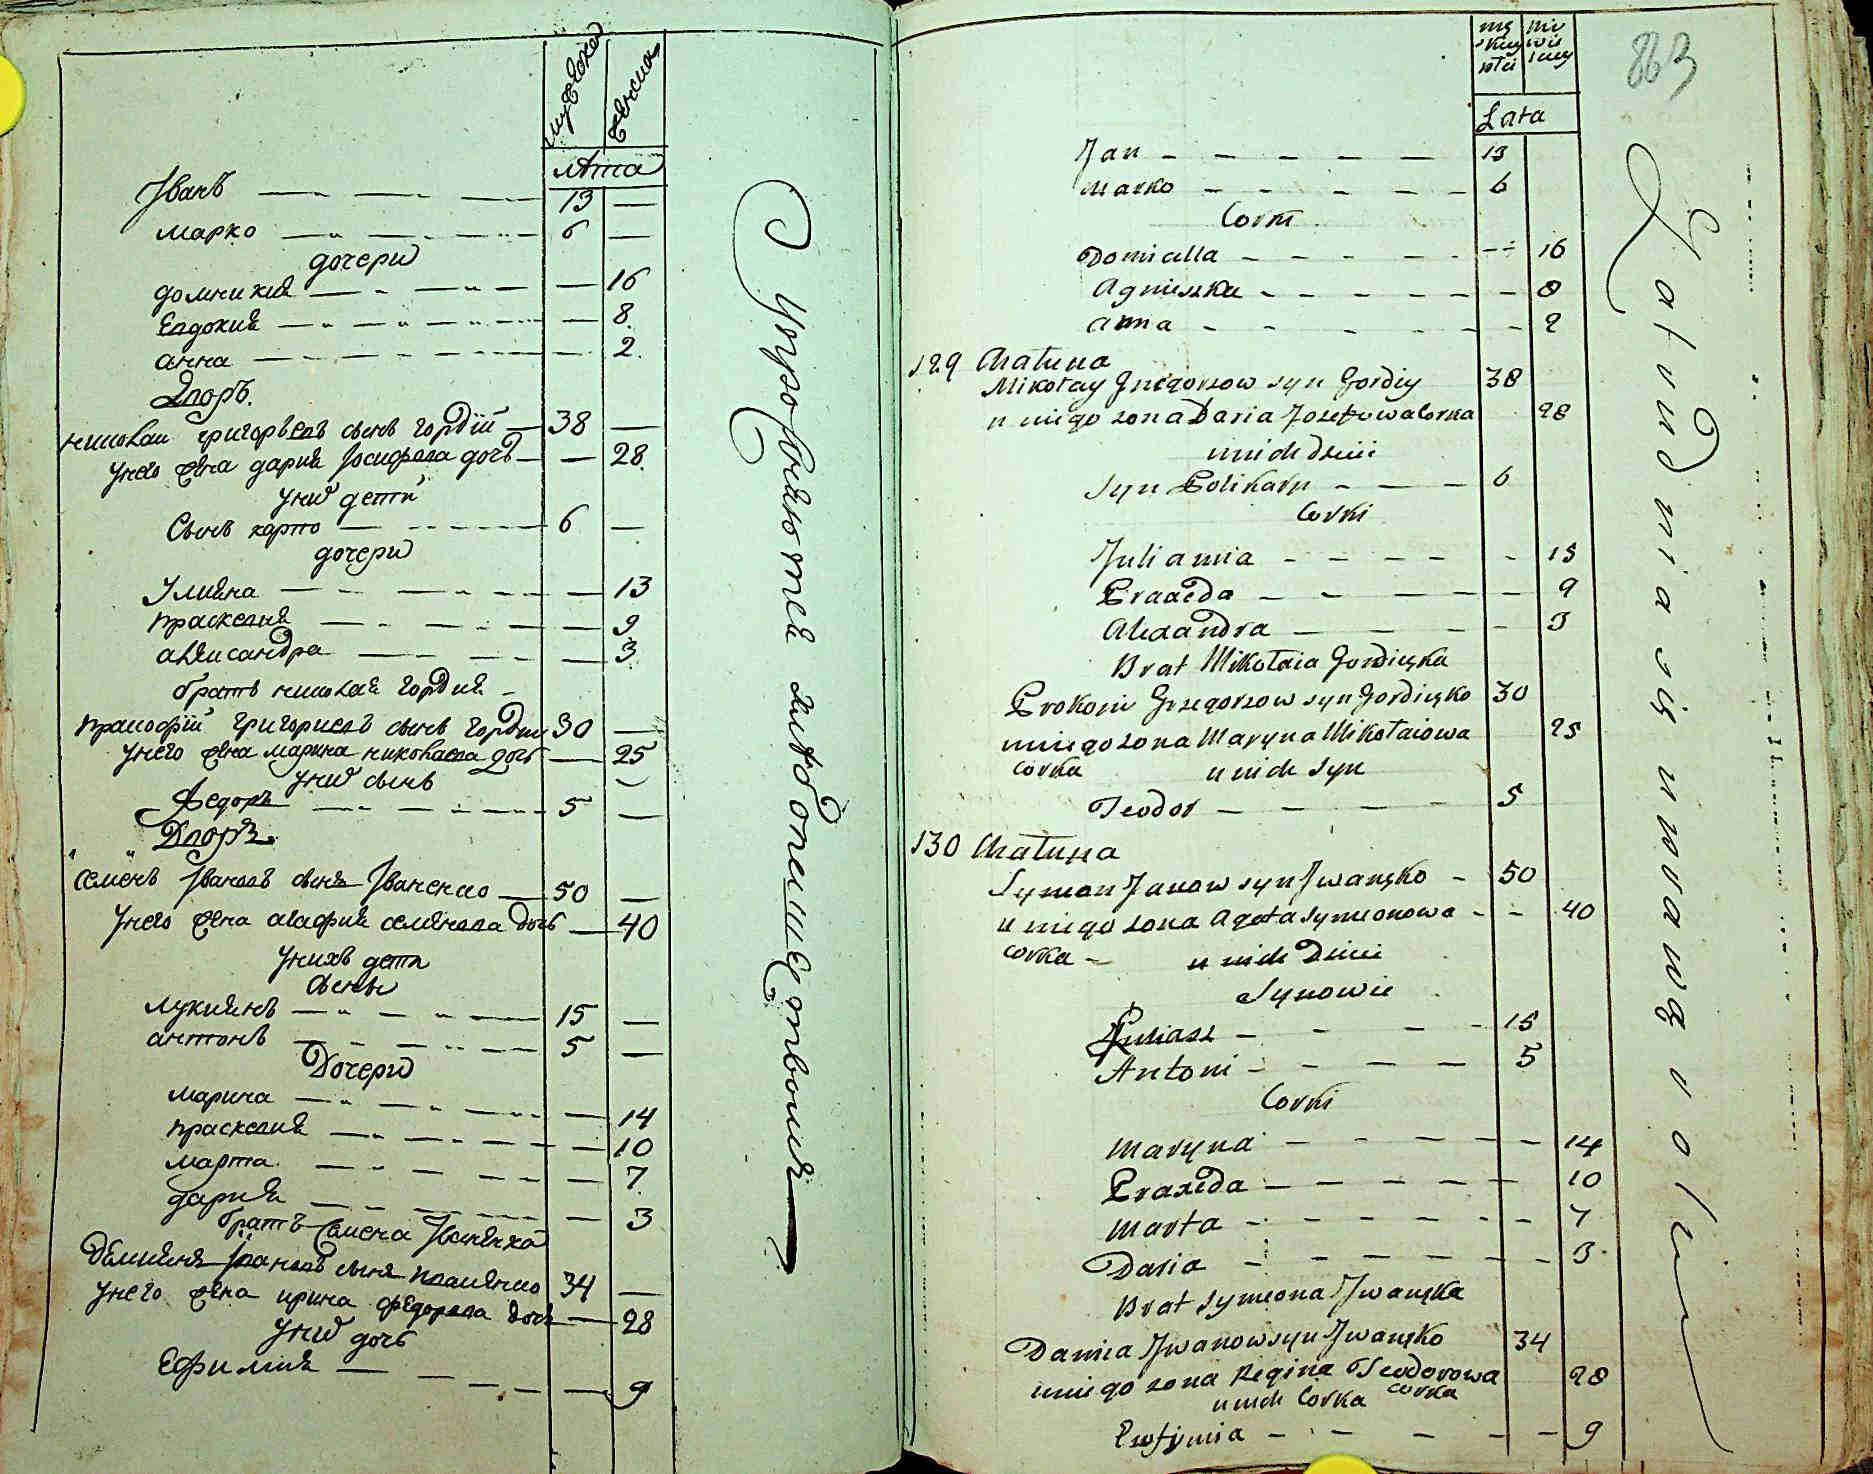 мужеска
женска
лѣта
Іванъ 13 —
марко 6 —
дочери
домникия — 16
Евдокия — 8
анна — 2
Дворъ.
николай григорьевъ сынъ гордій — 38 —
унего жена дария Іосифова дочь — 28
уних дети
Сынъ карпо 6 —
дочери
Улияна — 13
праскевия — 9
александра — 3
братъ николая гордия
прокофій григориевъ сынъ гордий 30 —
унего жена марина николаева дочь — 25
уних сынъ
Федоръ 5 —
Дворъ.
семенъ Івановъ сынъ Іваненко — 50 —
унего жена агафия семенова дочь — 40
унихъ дети
сыны
лукиянъ 15 —
антонъ 5 —
Дочери
марина — 14
праскевия — 10
марта — 7
дария — 3
братъ семена Іваненка
Демиянъ Івановъ сынъ 34 —
унего жена ирина федорова дочь — 28
уних дочь
Ефимия — 9
męskiey
płci
Lata
863
Jan — 13
Marko — 6
Corki
Domicella — 16
Agnieszka — 8
Anna — 2
129 Chałupa
Mikołay Grzegorzow syn Gordiy 38
u niego żona Daria Jozefowa Corka 28
u nich dzieci
Syn Polikarp — 6
Corki
Julianna — 15
Praxeda — 9
Alexandra — 3
Brat Mikołaia Gordieyka
Prokopi Grzegorzow syn Gordieyko 30
u niego żona Maryna Mikołaiowa 25
corka u nich syn
Teodor — 5
130 Chałupa
Symon Janow syn Iwanęko — 50
u niego żona Agata Symeonowa — 40
corka — u nich Dzieci
Synowie
Łukasz — 15
Antoni — 5
Corki
Maryna — 14
Praxeda — 10
Marta — 7
Daria — 3
Brat Symeona Iwanęka
Damian Iwanow syn Iwanęko 34
u niego żona Regina Teodorowa 28
u nich Corka corka
Eufimia — 9